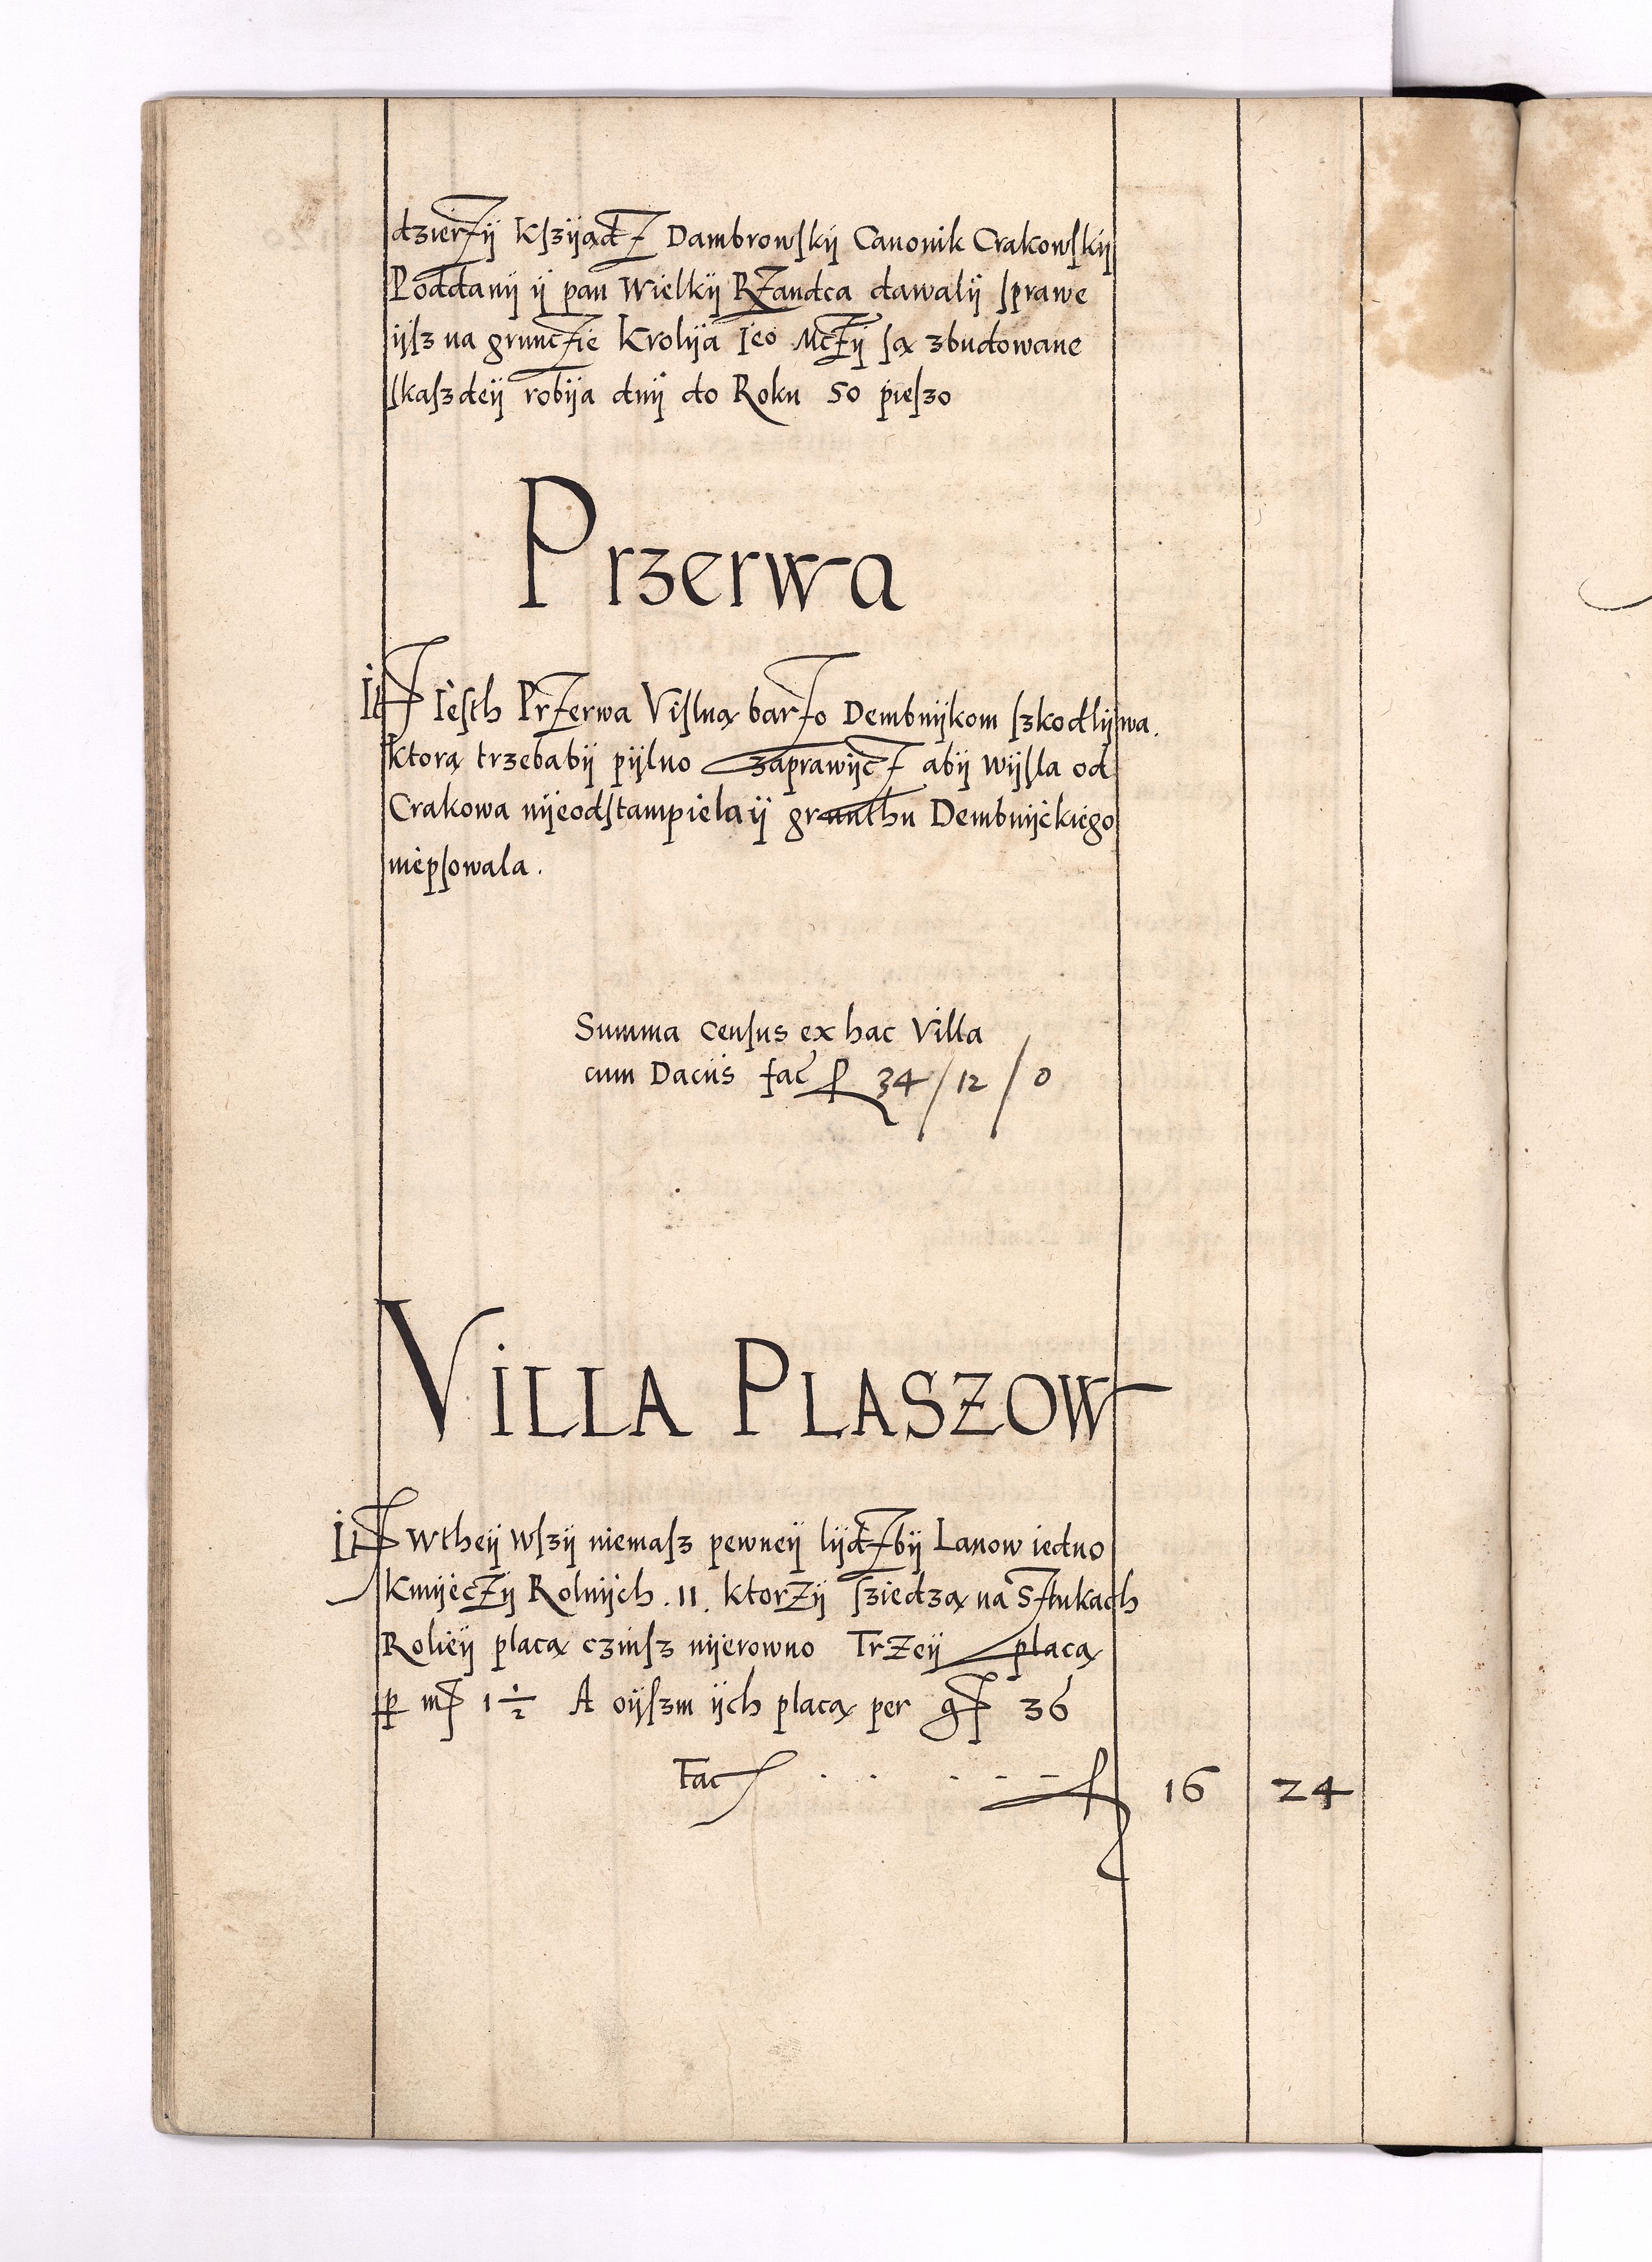 dzierżÿ Kſzÿądż Dambrowſkÿ Canonik Crakowſkÿ
Poddanÿ ÿ pan Wielkÿ Rżandca dawalÿ ſprawe
ÿſz na gruncżie Krolÿa Ieo Mcżÿ ſą zbudowane
ſkaſzdeÿ robÿa dnÿ do Roku 50 pieſzo
Przerwa
It Ieſth Prżerwa Viſlną barżo Dembnÿkom ſzkodlÿwa.
ktorą trzebabÿ pÿlno zaprawÿcż abÿ wÿſla od
Crakowa nÿeodſtampiela ÿ grunthu Dembnÿckiego
niepſowala.
Summa cenſus ex hac Villa
cum Daciis fac fl 34 / 12 / 0
VILLA PLASZOW
It Wtheÿ Wſzÿ niemaſz pewneÿ lÿdżbÿ Lanow iedno
Kmÿeczÿ Rolnÿch . 11 . ktorzÿ ſziedzą na Sżtukach
Rolieÿ placą czinſz nÿerowno Trzeÿ placą
p mr 1 ½ A oÿſzm ÿch placą per gr 36
Fac . . . - - fl 16 24